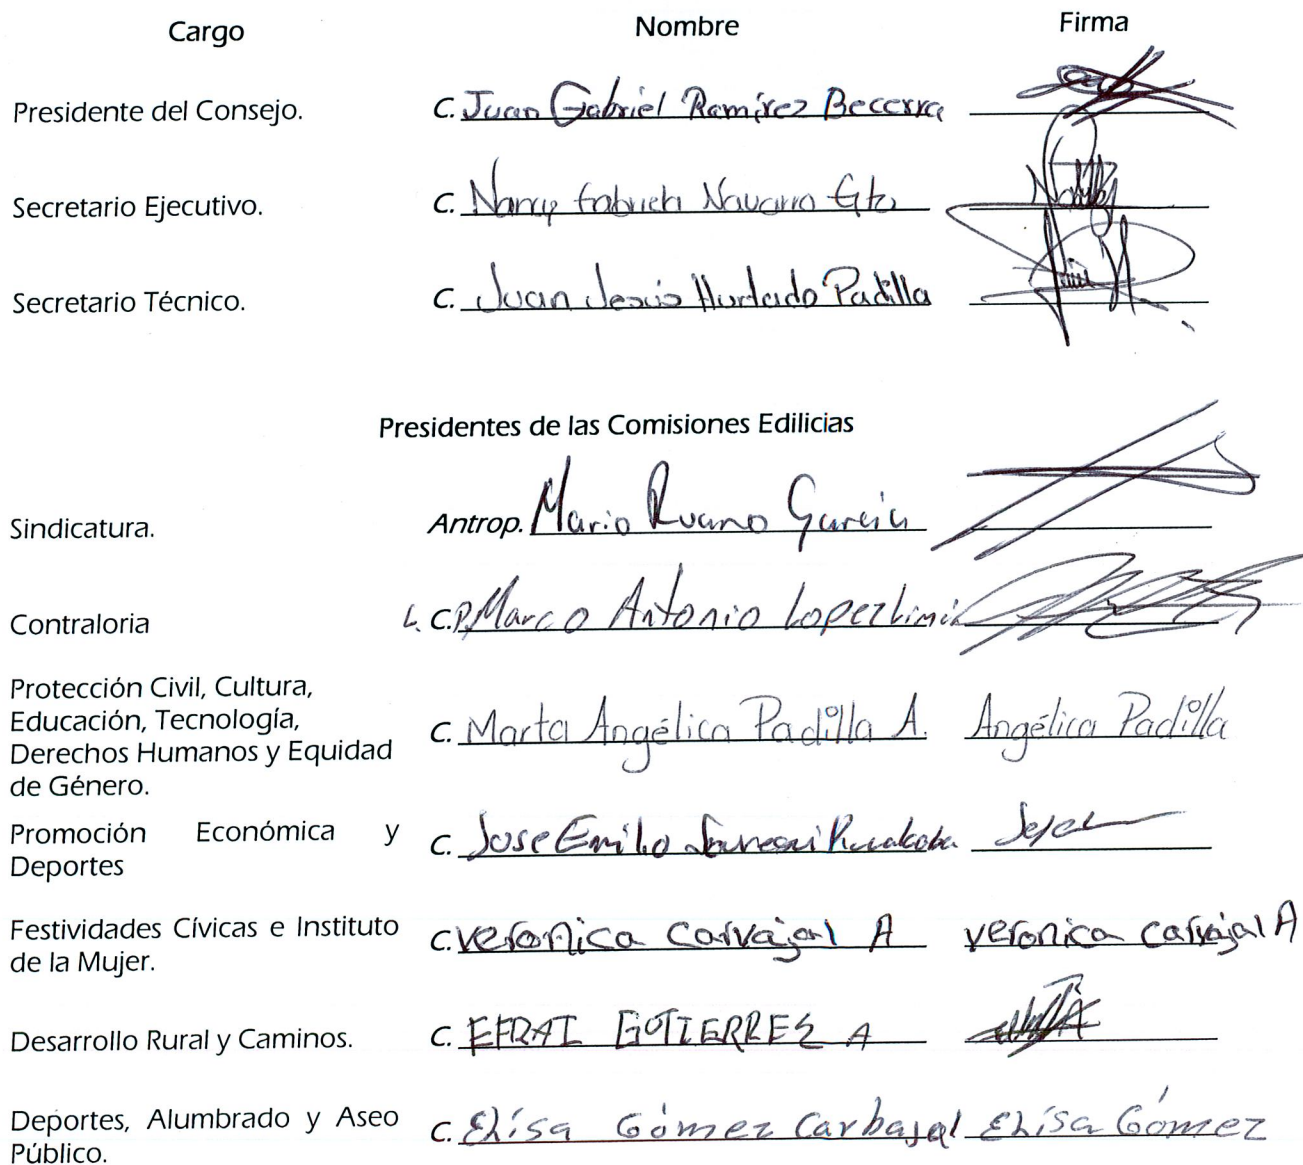 Cargo Nombre Firma
Presidente del Consejo. C. Juan Gabriel Ramírez Becerra
Secretario Ejecutivo. C. Nancy Gabriela Navarro
Secretario Técnico. C. Juan Jesús Hurtado Padilla
Presidentes de las Comisiones Edilicias
Sindicatura. Antrop. Mario Ruano García
Contraloria L. C.P. Marco Antonio Lopez
Protección Civil, Cultura,
Educación, Tecnología,
Derechos Humanos y Equidad
de Género.
C. Marta Angélica Padilla A. Angélica Padilla
Promoción Económica y
Deportes
C. Jose Emilio
Festividades Cívicas e Instituto
de la Mujer.
C. veronica carvajal A veronica carvajal A
Desarrollo Rural y Caminos. C. EFRAI GOTIERRES A
Deportes, Alumbrado y Aseo
Público.
C. Elísa Gómez Carbajal Elísa Gómez